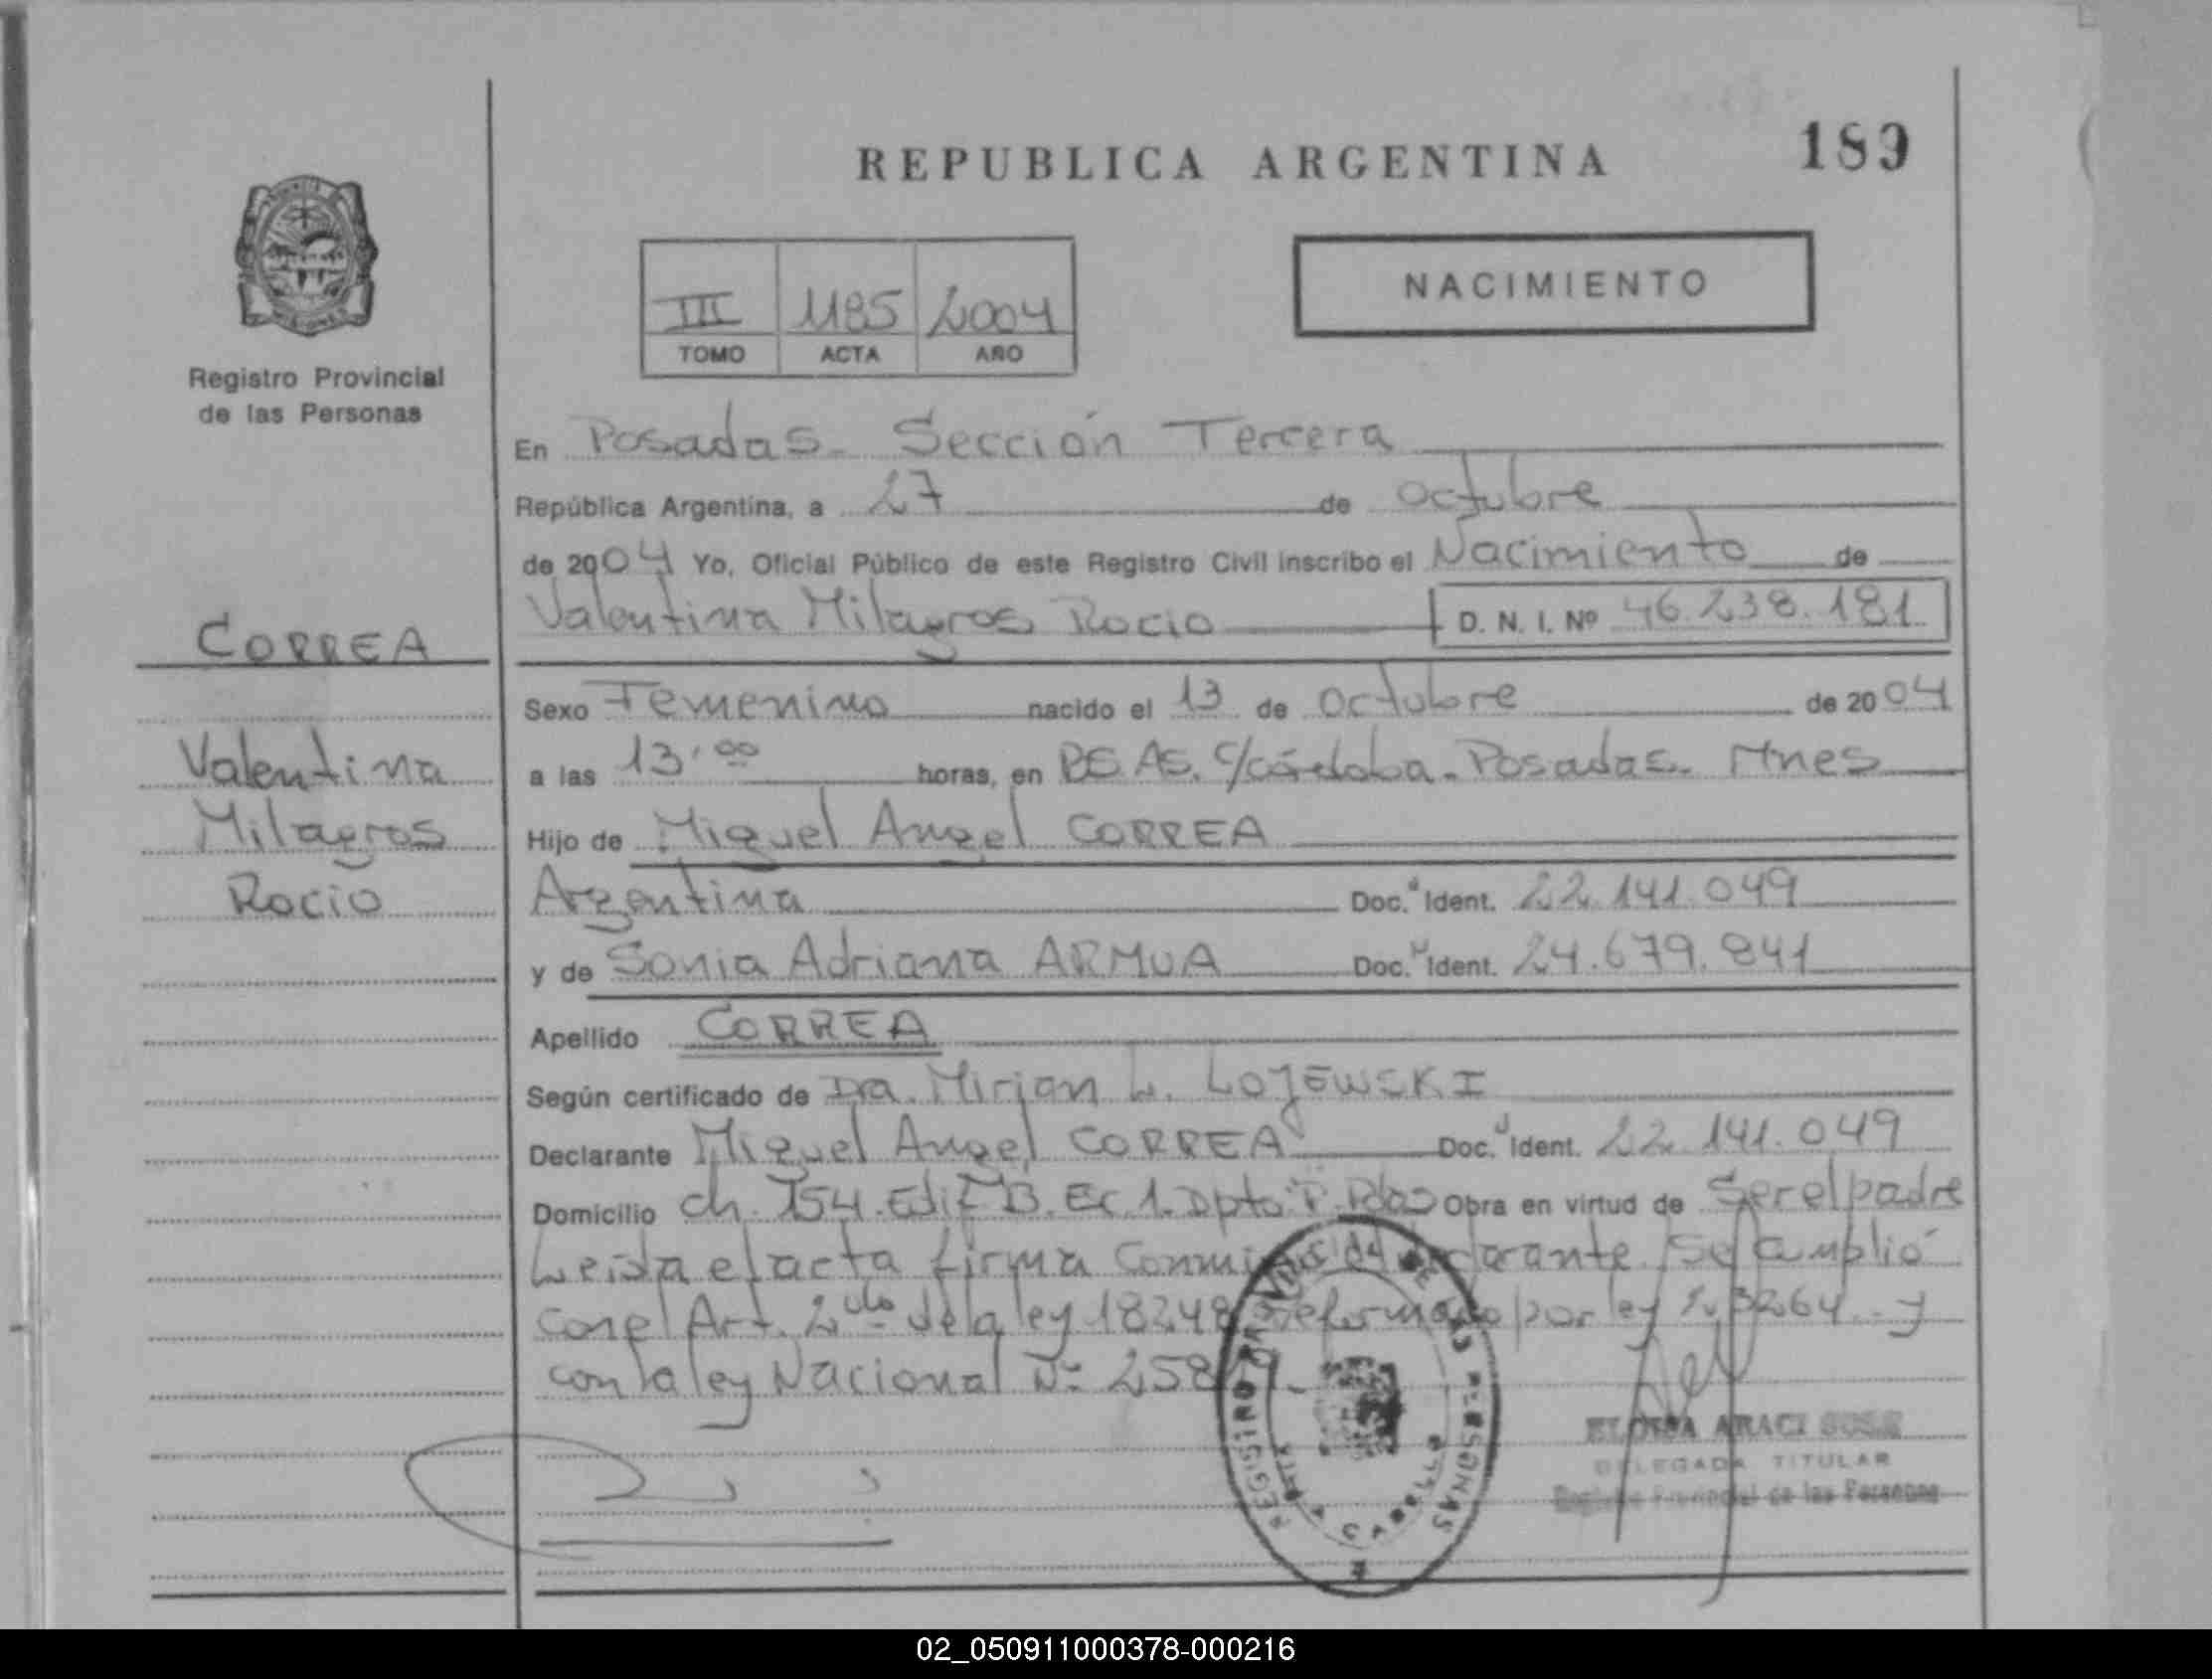 REPUBLICA ARGENTINA
189
NACIMIENTO
III 1185 2004
TOMO ACTA AÑO
Registro Provincial
de las Personas
En Posadas - Sección Tercera
República Argentina, a 27 de octubre
de 2004 Yo, Oficial Público de este Registro Civil inscribo el Nacimiento de
Valentina Milagros Rocio D. N. I. Nº 46.238.181
CORREA
Sexo Femenino nacido el 13 de octubre de 2004
Valentina
a las 13,00 horas, en BS.AS. C/córdoba - Posadas - Mnes
Milagros
Hijo de Miguel Angel CORREA
Rocio
Argentina Doc. Ident. 22.141.049
y de Sonia Adriana ARMUA Doc. Ident. 24.679.841
Apellido CORREA
Según certificado de Dra. Mirian L. LOJEWSKI
Declarante Miguel Angel CORREA Doc. Ident. 22.141.049
Domicilio ch. 154. Edif B. Ec 1. Dpto "P". Pdas Obra en virtud de Ser el padre
Leida el acta firma Conmigo el declarante. Se amplió
con el Art. 2do de la ley 18248 reformado por ley 23264 - y
con la ley Nacional Nº
REGISTRO PROVINCIAL DE LAS PERSONAS
ELOISA ARACI
DELEGADA TITULAR
Registro Provincial de las Personas
02_050911000378-000216